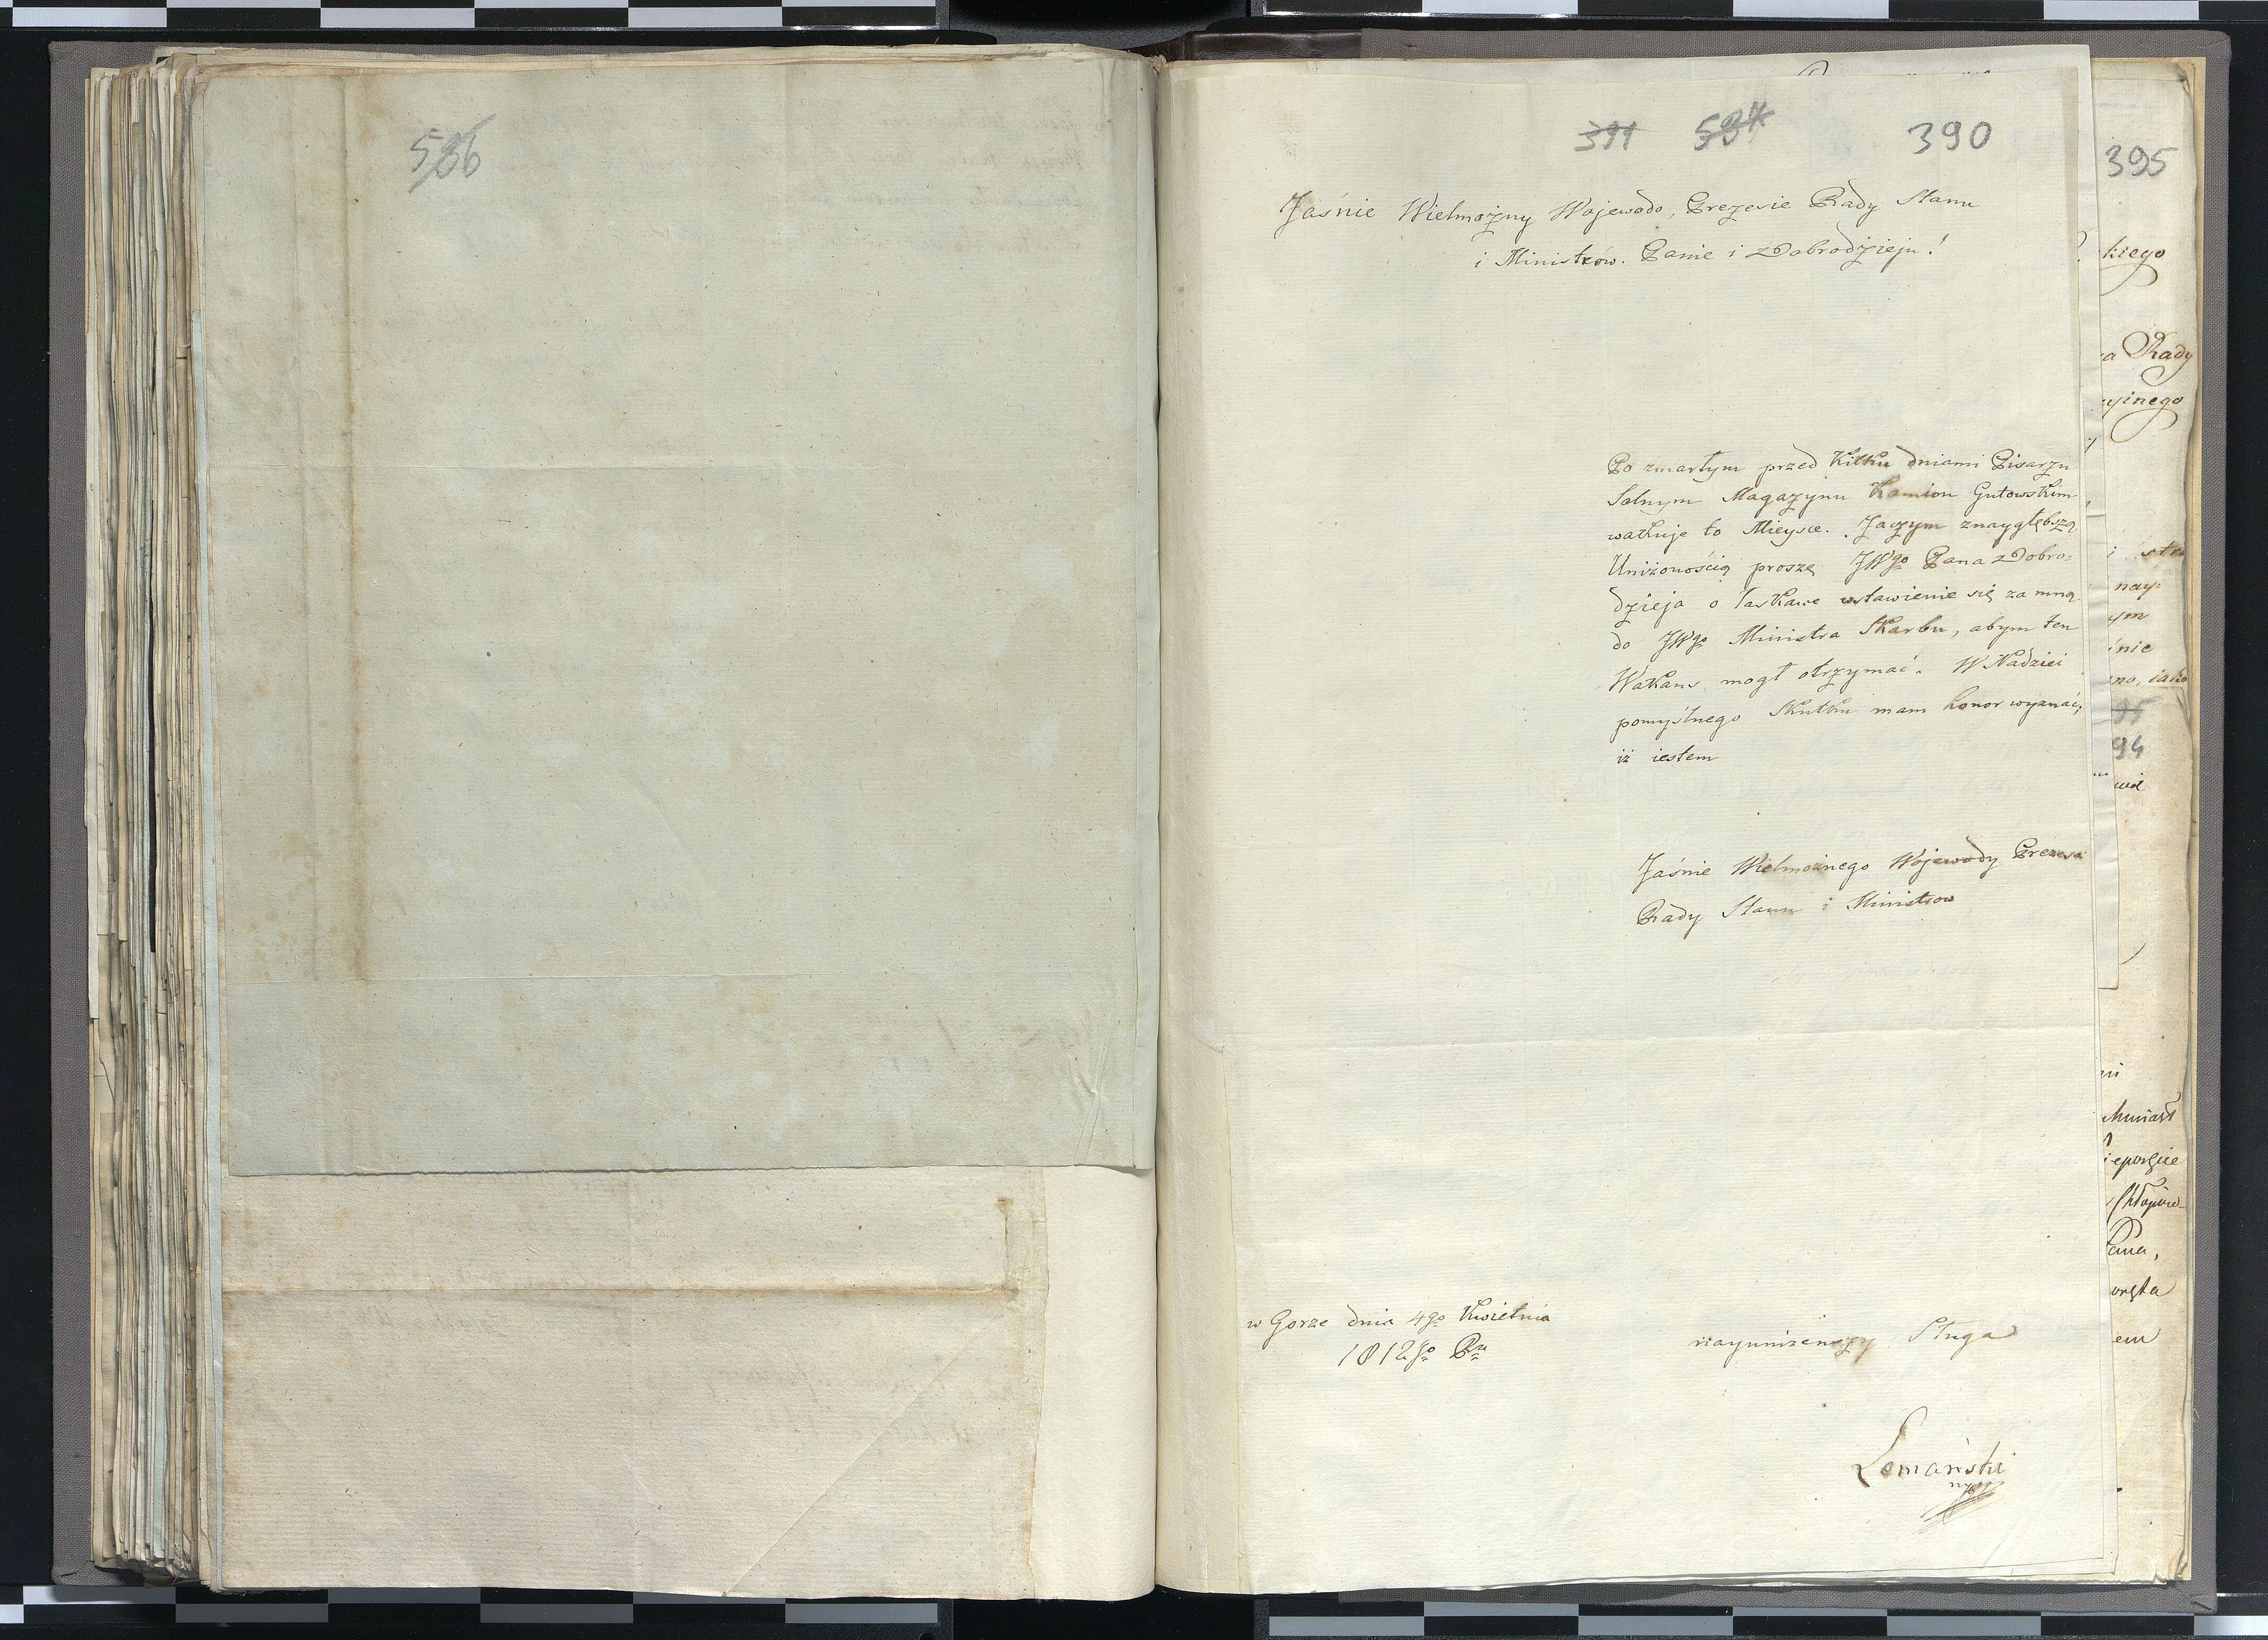 586
391 584 390
Jaśnie Wielmożny Wojewodo, Prezesie Rady Stanu
i Ministrów. Panie i Dobrodzieju!
Po zmarłym przed Kilku dniami Pisarzu
Solnym Magazynu Kamion Gutowskim
wakuje to Mieysce. Jaczym znaygłębszą
Uniżonością proszę JWgo Pana Dobro=
dzieja o łaskawe wstawienie się za mną
do JWgo Ministra Skarbu, abym ten
Wakans mogł otrzymać. W Nadziei
pomyślnego Skutku mam honor wyznać,
iż iestem
Jaśnie Wielmożnego Wojewody Prezesa
Rady Stanu i Ministrow
w Gorze dnia 4go Kwietnia
1812go Ru
nayuniżenszy Sługa
Lemański
395
kiego
a Rady
yinego
nay=
ym
nie
no, iako
95
94
Pana,
em